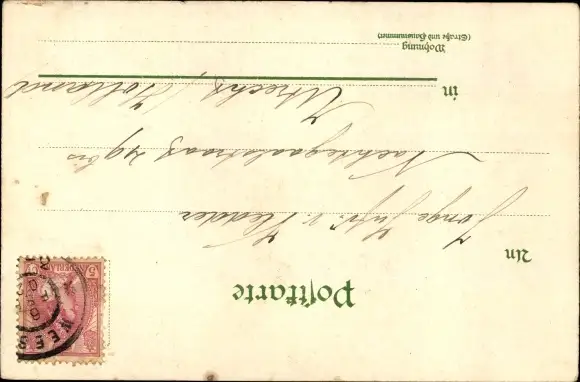 Postkarte
An
Jonge Jufr. v. Hedder
Nachtegaalstraat 29 bis
in Utrecht / Holland
Wohnung
(Straße und Hausnummer)
5
NEDERLAND
5